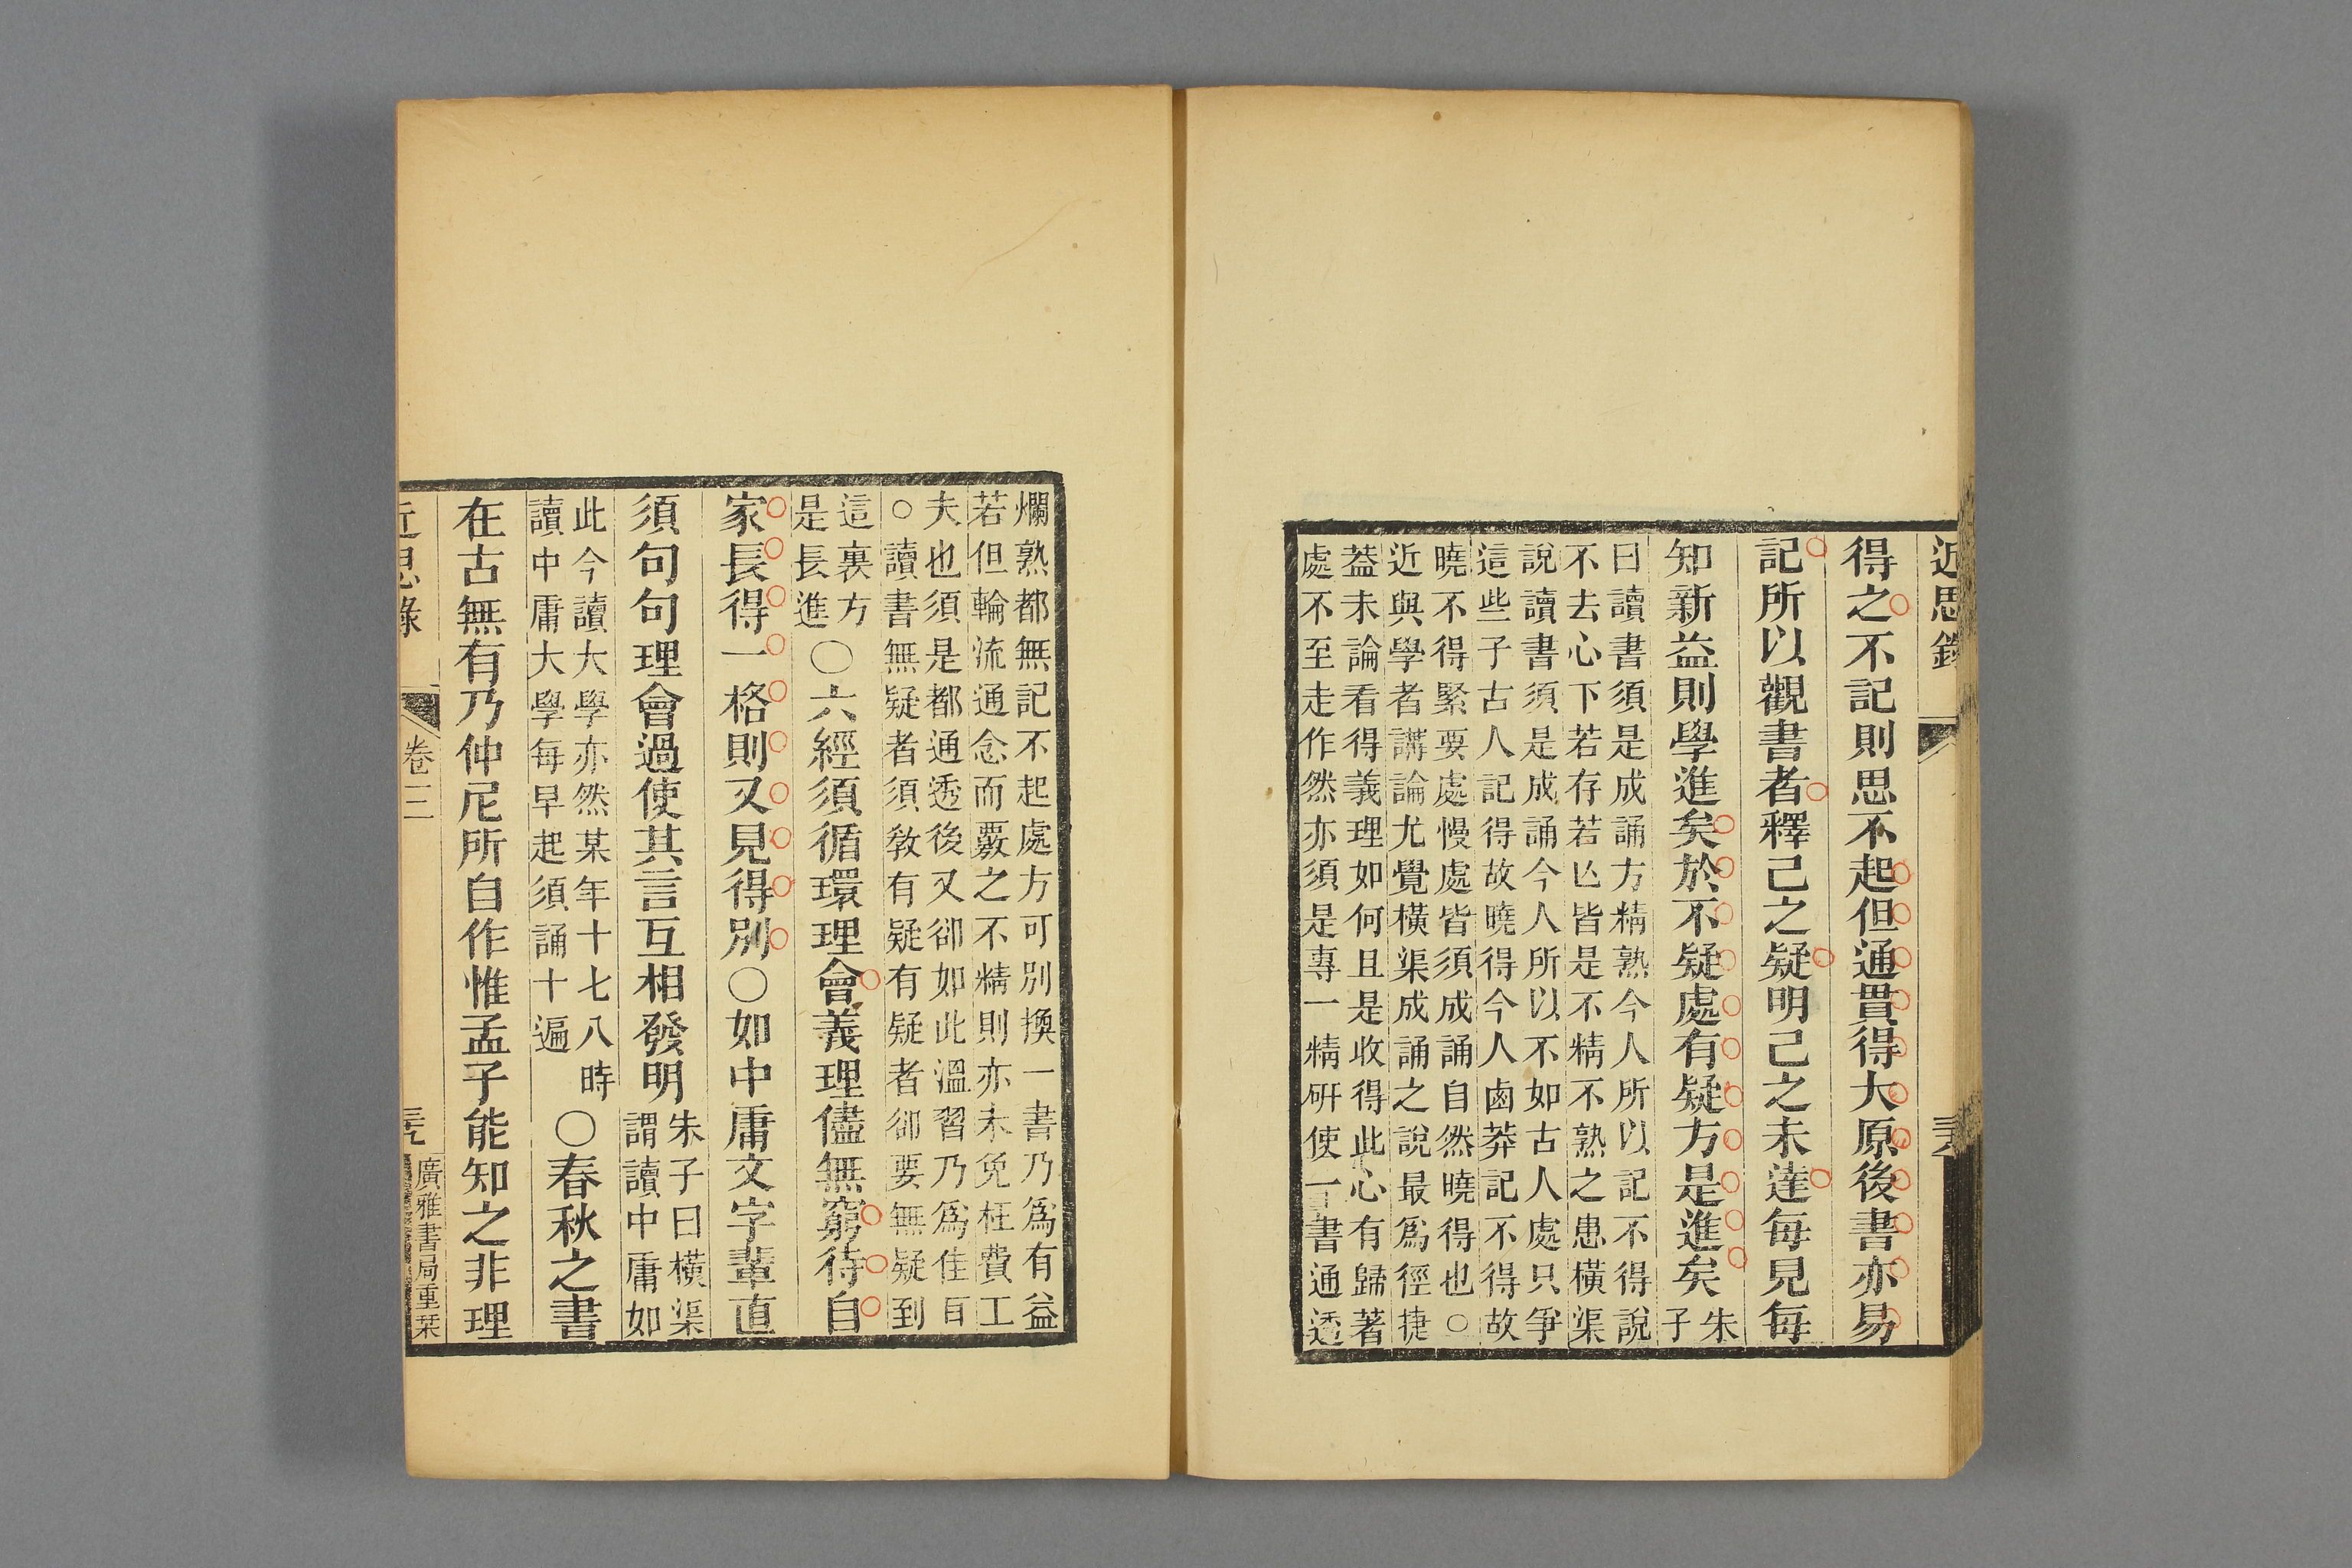 近思錄
得之不記則思不起但通貫得大原後書亦易
記所以觀書者釋己之疑明己之未達每見每
知新益則學進矣於不疑處有疑方是進矣朱
子
曰讀書須是成誦方精熟今人所以記不得說
不去心下若存若亾皆是不精不熟之患橫渠
說讀書須是成誦今人所以不如古人處只爭
這些子古人記得故曉得今人鹵莽記不得故
曉不得緊要處慢處皆須成誦自然曉得也○
近與學者講論尤覺橫渠成誦之說最爲徑捷
葢未論看得義理如何且是收得此心有歸著
處不至走作然亦須是專一精硏使一書通透
爛熟都無記不起處方可別換一書乃爲有益
若但輪流通念而覈之不精則亦未免枉費工
夫也須是都通透後又卻如此溫習乃爲佳百
○讀書無疑者須敎有疑有疑者卻要無疑到
這裏方
是長進
○六經須循環理會義理儘無窮待自
家長得一格則又見得別○如中庸文字輩直
須句句理會過使其言互相發明
朱子曰橫渠
謂讀中庸如
此今讀大學亦然某年十七八時
讀中庸大學每早起須誦十遍
○春秋之書
在古無有乃仲尼所自作惟孟子能知之非理
近思錄
卷三
廣雅書局重栞